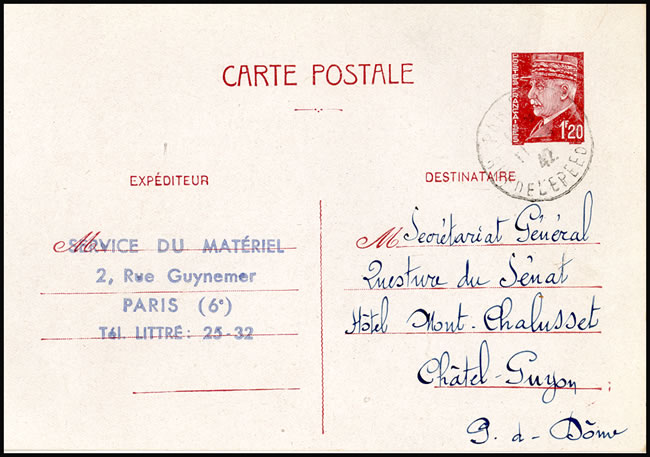 CARTE POSTALE
POSTES FRANÇAISES
1F20
42
DE L'EPEE
EXPÉDITEUR
M
SERVICE DU MATÉRIEL
2, Rue Guynemer
PARIS (6e)
Tél. LITTRÉ: 25-32
DESTINATAIRE
M Secrétariat Général
Questure du Sénat
Hôtel Mont-Chalusset
Châtel-Guyon
P. d- Dôme